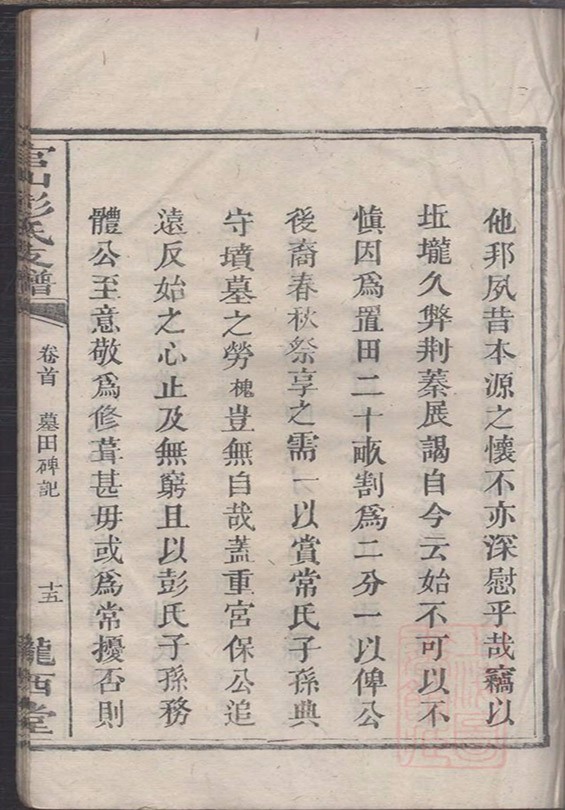 他邦夙昔本源之懷不亦深慰乎哉竊以
坵壠久弊荆蓁展謁自今云始不可以不
愼因爲置田二十畝割爲二分一以俾公
後裔春秋祭享之需一以賞常氏子孫典
守墳墓之勞槐豈無自哉蓋重宮保公追
遠反始之心止及無窮且以彭氏子孫務
體公至意敬爲修葺甚毋或爲常擾否則
官山彭氏支譜
卷首 墓田碑記 十五
隴西堂